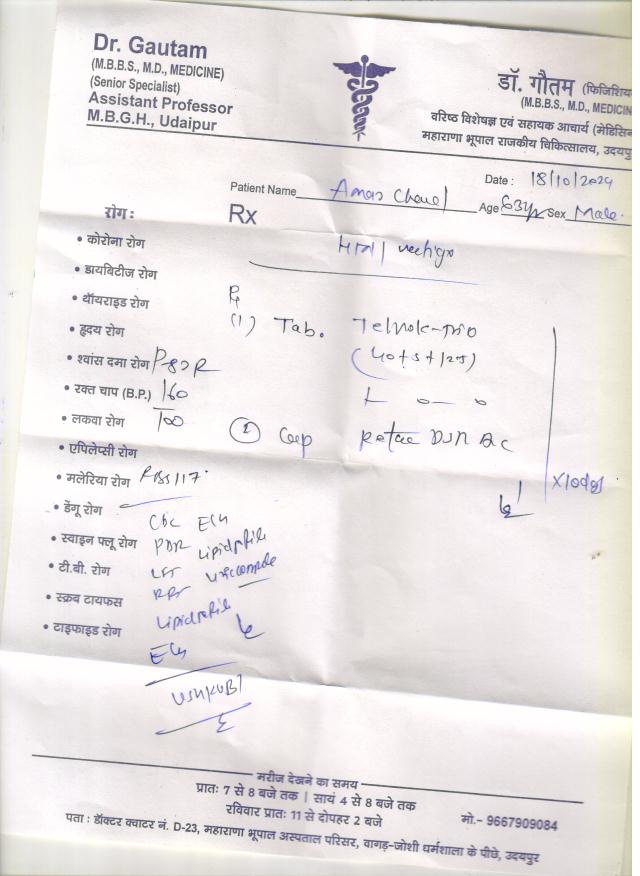 Dr. Gautam
(M.B.B.S., M.D., MEDICINE)
(Senior Specialist)
Assistant Professor
M.B.G.H., Udaipur
डॉ. गौतम (फिजिशिय
(M.B.B.S., M.D., MEDICIN
वरिष्ठ विशेषज्ञ एवं सहायक आचार्य (मेडिसिन
महाराणा भूपाल राजकीय चिकित्सालय, उदयपु
Date : 18/10/2024
Patient Name Amar Age 63yr Sex Male.
रोग :
Rx
• कोरोना रोग
• डायबिटीज रोग
• थॉयराइड रोग
(1) Tab.
• हृदय रोग
(40+5+12.5)
• श्वांस दमा रोग P-82R
• रक्त चाप (B.P.) 160
100
• लकवा रोग
② Cap
• एपिलेप्सी रोग
• मलेरिया रोग RBS 117.
x10days
• डेंगू रोग
CBC ECG
• स्वाइन फ्लू रोग
Lipid profile
• टी.बी. रोग
LFT
• स्क्रब टायफस
RFT
Lipid profile
• टाइफाइड रोग
ECG
मरीज देखने का समय
प्रातः 7 से 8 बजे तक | सायं 4 से 8 बजे तक
रविवार प्रातः 11 से दोपहर 2 बजे
मो.- 9667909084
पता : डॉक्टर क्वाटर नं. D-23, महाराणा भूपाल अस्पताल परिसर, वागड़-जोशी धर्मशाला के पीछे, उदयपुर